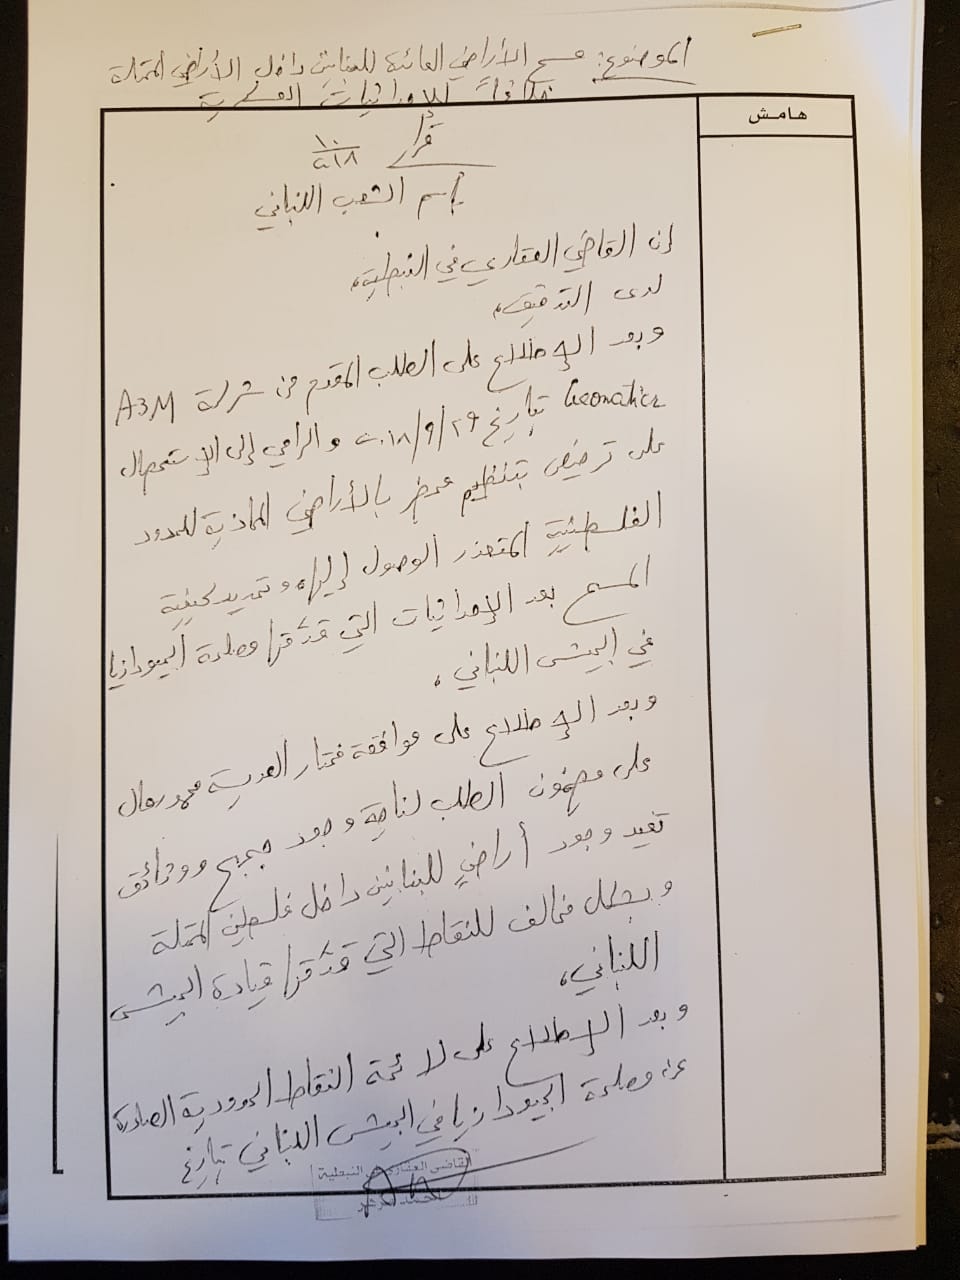 الموضوع: مسح الأراضي العائدة للبنانيين داخل الأراضي المحتلة
خلافاً للإحداثيات العسكرية
هامش
قرار ١٠/٢٠١٨
باسم الشعب اللبناني
إن القاضي العقاري في النبطية،
لدى التدقيق،
وبعد الإطلاع على الطلب المقدم من شركة A3M
Geomatics بتاريخ ٢٩/٩/٢٠١٨ والرامي إلى الإستحصال
على ترخيص بتنظيم محضر بالأراضي المحاذية للحدود
الفلسطينية المتعذر الوصول إليها، وتحديد كيفية
المسح بعد الإحداثيات التي قدّمتها مصلحة الجيودازيا
في الجيش اللبناني،
وبعد الإطلاع على موافقة مختار العديسة محمد رمال
على مضمون الطلب لناحية وجود حجج ووثائق
تفيد وجود أراضي للبنانيين داخل فلسطين المحتلة
وبشكل مخالف للنقاط التي قدّمتها قيادة الجيش
اللبناني،
وبعد الإطلاع على لائحة النقاط الحدودية الصادرة
عن مصلحة الجيودازيا في الجيش اللبناني بتاريخ
القاضي العقاري في النبطية